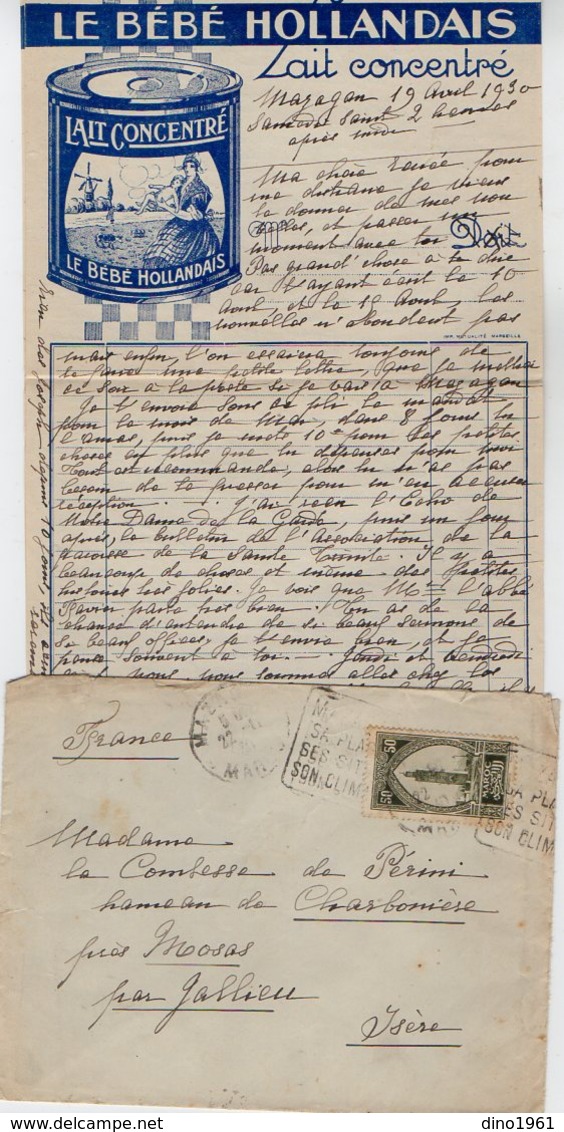 LE BÉBÉ HOLLANDAIS
Lait concentré
LAIT CONCENTRÉ
LE BÉBÉ HOLLANDAIS
Mazagan 19 Avril 1930
Samedi Saint 2 heures
après midi
Ma chère Renée pour
me distraire je viens
te donner de mes nou
velles, et passer un
moment avec toi
M
Doit
Pas grand'chose à te dire
car t'ayant écrit le 10
Avril, et le 12 Avril, les
nouvelles n'abondent pas
IMP. MUTUALITÉ MARSEILLE
mais enfin, l'on essaiera toujours de
te faire une petite lettre, que je mettrai
ce soir à la poste si je vais à Mazagan
Je t'envoie sous ce pli le mandat
pour le mois de Mai, dans 8 jours tu
l'auras, puis je mets 10 pour les petites
choses en plus que tu dépenses pour moi
Tout est recommandé, alors tu n'as pas
besoin de te presser pour m'en accuser
réception. J'ai reçu l'Echo de
Notre Dame de la Garde, puis un jour
après, le bulletin de l'Association de la
paroisse de la Sainte Trinité. Il y a
beaucoup de choses et même des petites
histoires très jolies. Je vois que M l'abbé
Xavier parle très bien. Tu as de la
chance d'entendre de si beaux sermons de
si beaux offices, je t'envie bien, et je
pense souvent à toi. Jeudi et Vendredi
nous sommes allés chez les
10 jours,
MAROC
50
50
22
MA
SES SIT
SON CLIM
SA PLA
SES SIT
SON CLIM
France
Madame
la Comtesse de Périni
hameau de Charbonière
près Mosas
par Jallieu
Isère
dino1961